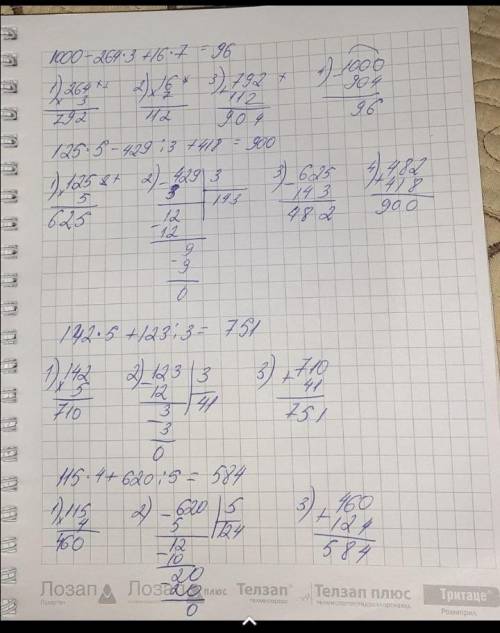 1000-264·3+16·7=96
1) 264 × 3 792 2) 16 × 7 112 3) 792 + 112 904 4) 1000 - 904 96
125·5-429:3+418=900
1) 125 × 5 625 2) 429 3 3 143 12 12 9 9 0 3) 625 - 143 482 4) 482 + 418 900
142·5+123:3=751
1) 142 × 5 710 2) 123 3 12 41 3 3 0 3) 710 + 41 751
115·4+620:5=584
1) 115 × 4 460 2) 620 5 5 124 12 10 20 20 0 3) 460 + 124 584
Лозап Лозап плюс Телзап® Телзап плюс Тритаце®